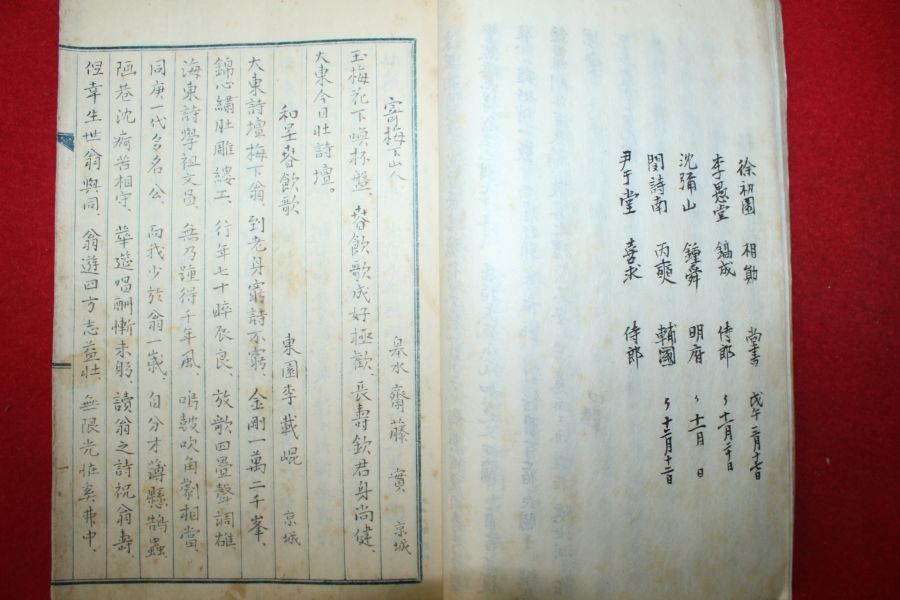 徐初園 相勛 尚書 戊午三月十七日
李愚堂 鎬成 侍郎 〃 十一月二十日
沈彌山 鍾舜 明府 〃 十一月 日
閔詩南 丙奭 輔國 〃 十二月十二日
尹于堂 喜求 侍郎
寄梅下山人
泉水 齋藤 實 京城
玉梅花下喚杯盤、春飮歌成好極歡、長壽欽君身尚健、
大東今日壯詩壇。
和呈春飮歌
東園 李載崐 京城
大東詩壇梅下翁、到老身窮詩不窮、金剛一萬二千峯、
錦心繡肚雕縷工、行年七十睟衣良、放歌四疊聲調雄、
海東詩學祖文昌、無乃踵得千年風、鳴鼓吹角劇相當、
同庚一代多名公、而我少於翁一歲、自分才薄懸鵠蟲、
陋巷沈痾苦相守、華筵唱酬慚未躬、讀翁之詩祝翁壽、
但幸生世翁與同、翁遊四方志益壯、無限光恠奚弗中、